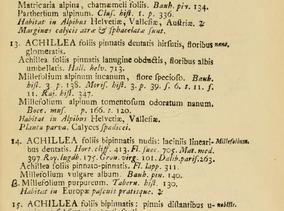 Matricaria alpina, chamæmeli foliis. Bauh. pin. 134.
Parthenium alpinum. Clus. hist. 1. p. 336.
Habitat in Alpibus Helvetiæ, Vallesiæ, Austriæ. ♃
Margines calycis atræ & sphacelatæ sunt.
13. ACHILLEA foliis pinnatis dentatis hirsutis, floribus nana.
glomeratis.
Achillea foliis pinnatis lanugine obductis, floribus albis
umbellatis. Hall. helv. 713.
Millefolium alpinum incanum, flore specioso. Bauh.
hist. 3. p. 138. Moris. hist. 3. p. 39. s. 6. t. 11. f.
11. Raj. hist. 347.
Millefolium alpinum tomentosum odoratum nanum.
Bocc. mus. p. 166. t. 120.
Habitat in Alpibus Helvetiæ, Vallesiæ.
Planta parva. Calyces spadicei.
14. ACHILLEA foliis bipinnatis nudis: laciniis lineari- Millefolium.
bus dentatis. Hort. cliff. 413. Fl. suec. 705. Mat. med.
397. Roy. lugdb. 175. Gron. virg. 101. Dalib. paris. 263.
Achillea foliis pinnato-pinnatis. Fl. lapp. 311.
Millefolium vulgare album. Bauh. pin. 140.
β. Millefolium purpureum. Tabern. hist. 130.
Habitat in Europæ pascuis pratisque. ♃
15. ACHILLEA foliis bipinnatis: pinnis distantibus